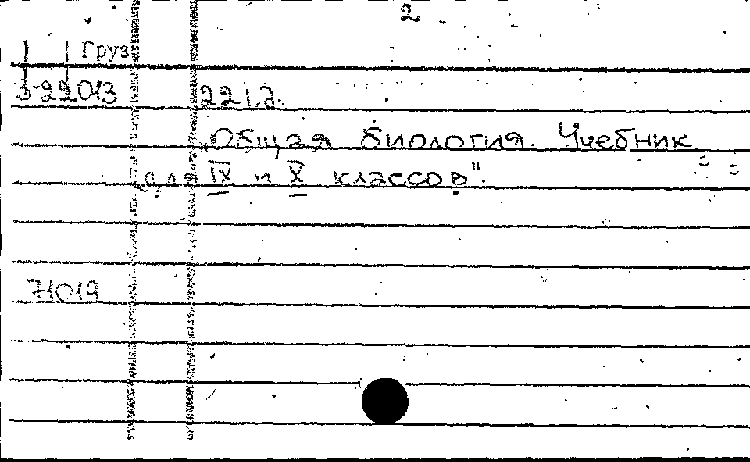 2
Груз
3-22013 221 2.
„Общая биология. Учебник
для IX и X классов".
71019